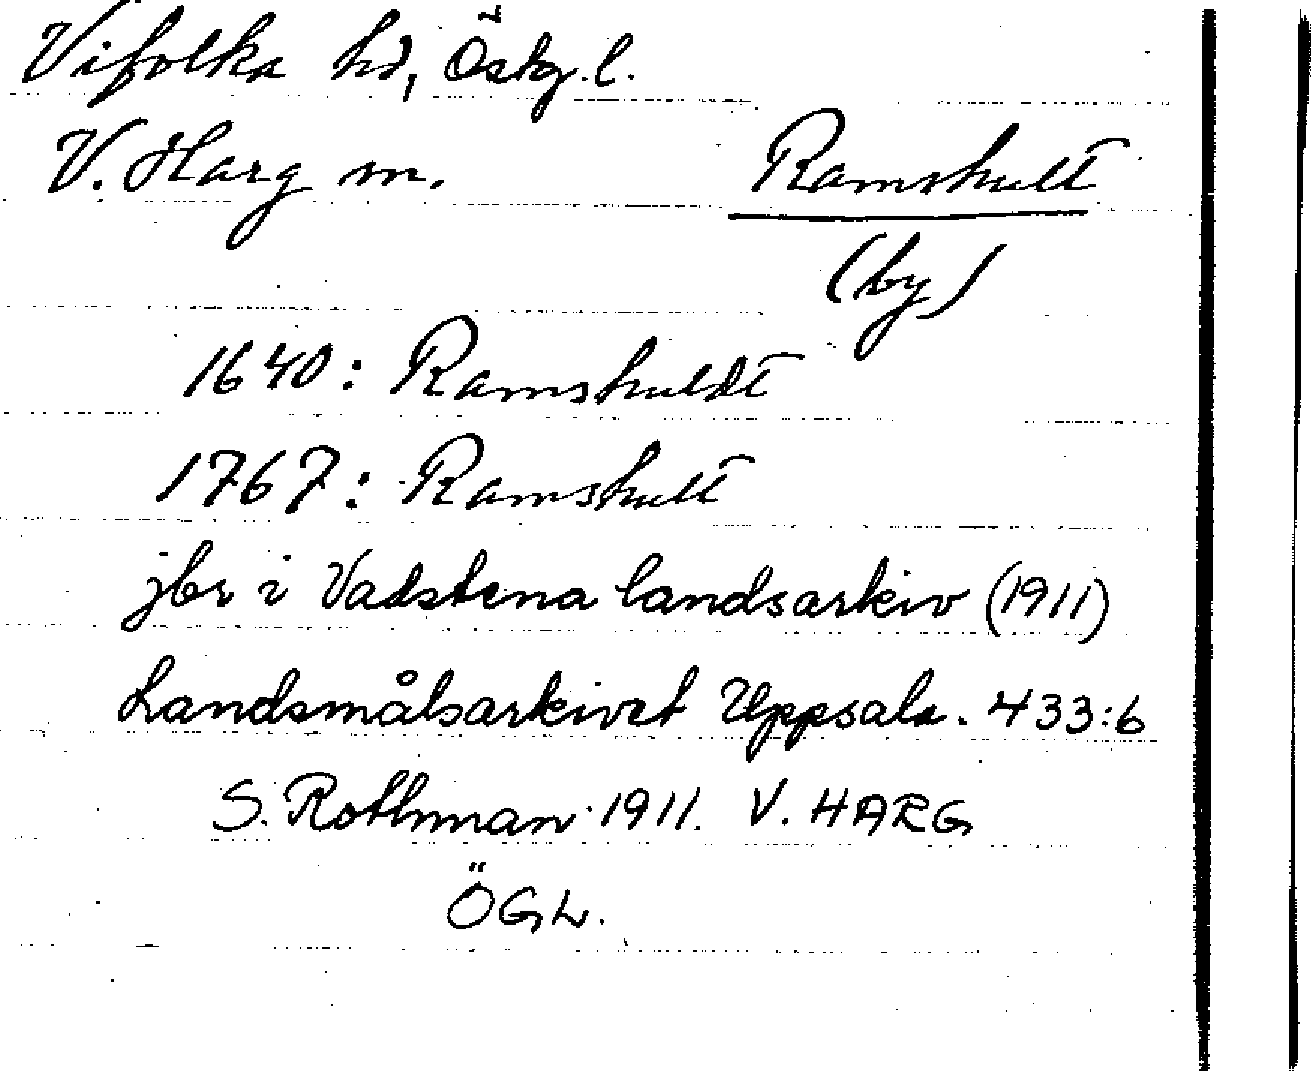 Vifolka hd, Östg. l.
V. Harg sn.
Ramshult
(by)
1640: Ramshuldt
1767: Ramshult
jbr i Vadstena landsarkiv (1911)
Landsmålsarkivet Uppsala. 433:6
S. Rothman 1911. V. HARG
ÖGL.